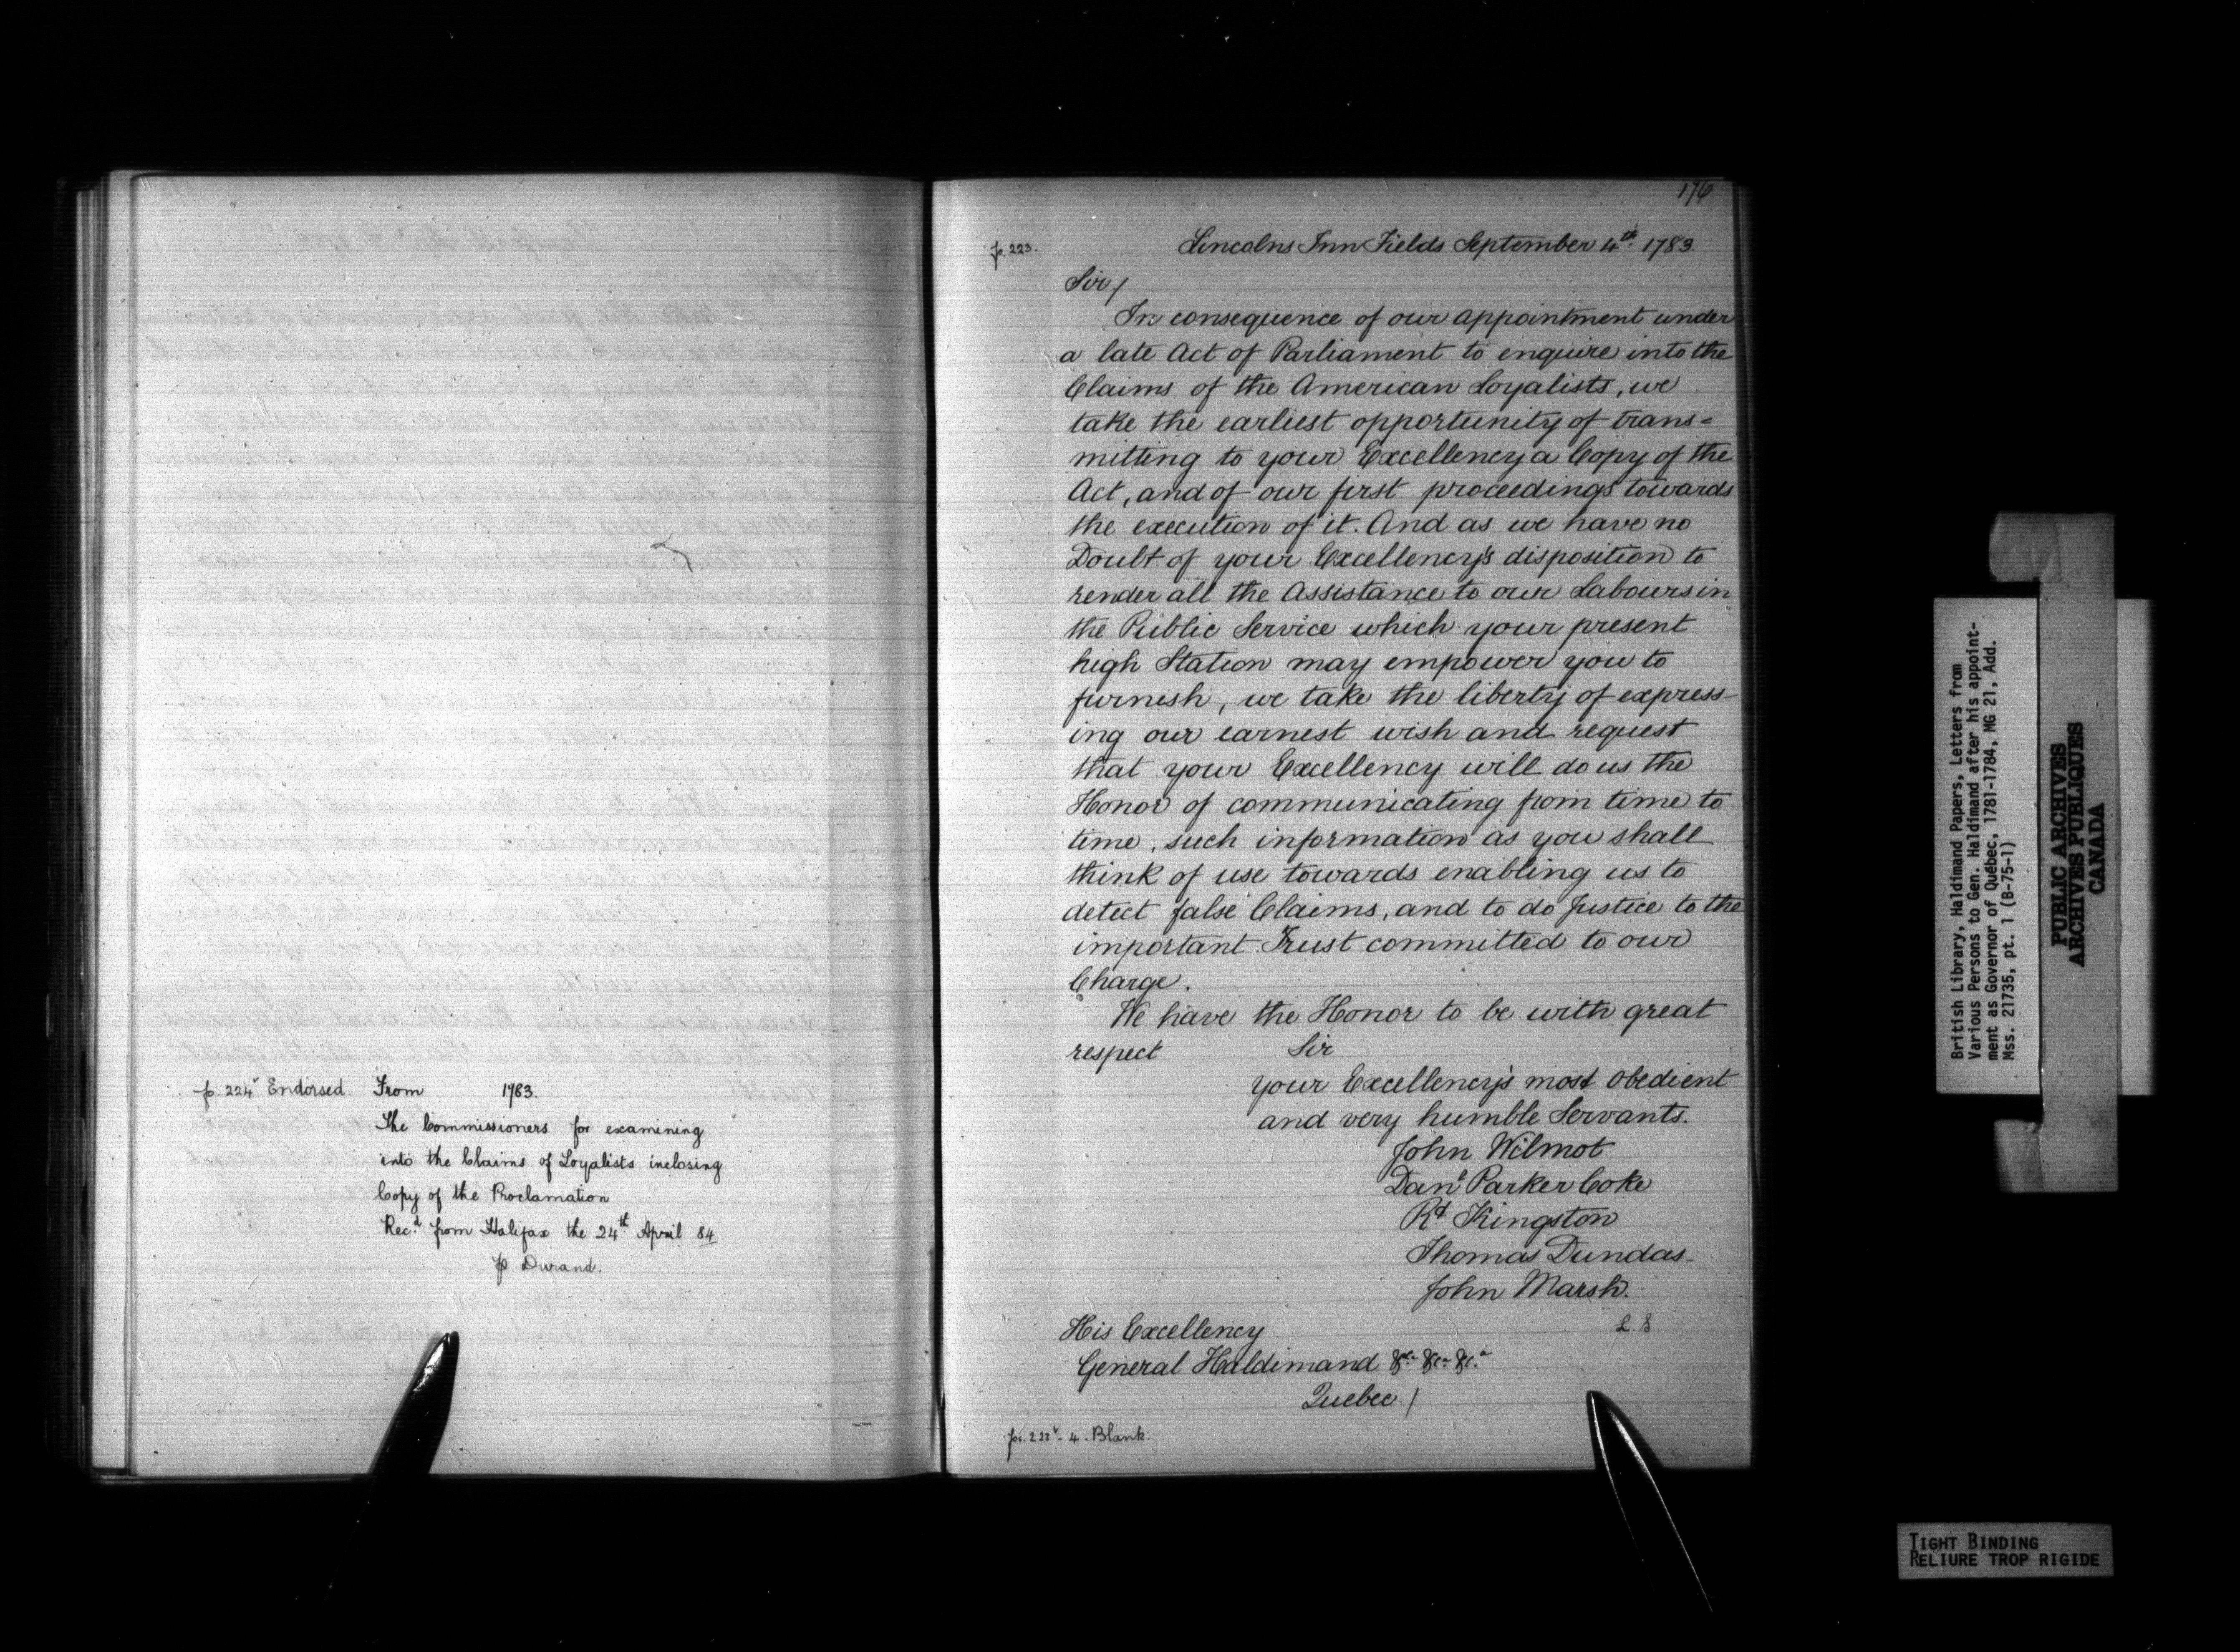 p. 224v Endorsed. From 1783.
The Commissioners for examining
into the Claims of Loyalists inclosing
Copy of the Proclamation
Recd from Halifax the 24th April 84
p Durand.
176
p. 223. Lincolns Inn Fields September 4th 1783
Sir/
In consequence of our appointment under
a late Act of Parliament to enquire into the
Claims of the American Loyalists, we
take the earliest opportunity of trans=
mitting to your Excellency a Copy of the
Act, and of our first proceedings towards
the execution of it. And as we have no
Doubt of your Excellency's disposition to
render all the Assistance to our Labours in
the Public Service which your present
high Station may empower you to
furnish, we take the liberty of express-
ing our earnest wish and request
that your Excellency will do us the
Honor of communicating from time to
time, such information as you shall
think of use towards enabling us to
detect false Claims, and to do Justice to the
important Trust committed to our
Charge.
We have the Honor to be with great
respect Sir
your Excellency's most Obedient
and very humble Servants.
John Wilmot
Danl Parker Coke
Rt Kingston
Thomas Dundas
John Marsh.
L.S
His Excellency
General Haldimand &ca &ca &ca
Quebec /
pp. 223v - 4. Blank.
British Library, Haldimand Papers, Letters from
Various Persons to Gen. Haldimand after his appoint-
ment as Governor of Québec, 1781-1784, MG 21, Add.
Mss. 21735, pt. 1 (B-75-1)
PUBLIC ARCHIVES
ARCHIVES PUBLIQUES
CANADA
TIGHT BINDING
RELIURE TROP RIGIDE